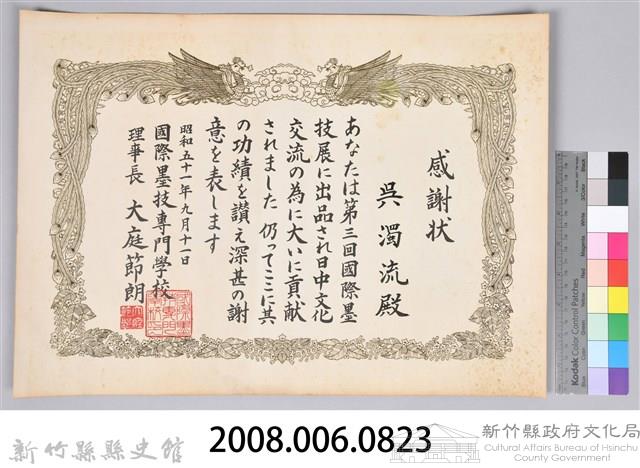 感謝状
呉濁流殿
あなたは第三回國際墨
技展に出品され日中文化
交流の為に大いに貢献
されました 仍ってここに其
の功績を讃え深甚の謝
意を表します
昭和五十一年九月十一日
國際墨技專門學校
理事長 大庭節朗
Kodak Color Control Patches
Blue
Cyan
Green
Yellow
Red
Magenta
White
3/Color
Black
新竹縣縣史館
2008.006.0823
新竹縣政府文化局
Cultural Affairs Bureau of Hsinchu
County Government